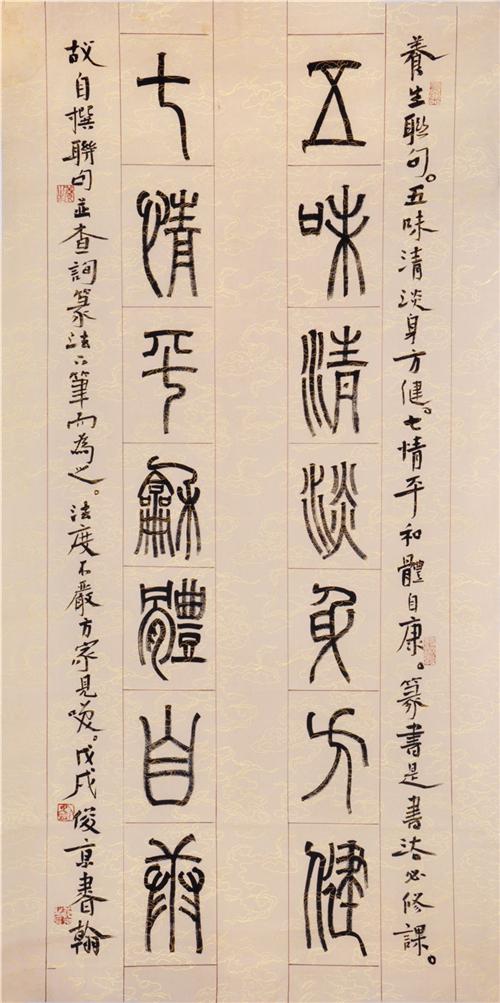 養生聯句。五味清淡身方健。七情平和體自康。篆書是書法必修課。
五味清淡身方健
七情平龢體自康
故自撰聯句並查詢篆法下筆而為之。法度不嚴方家見笑。戊戌俊京書翰